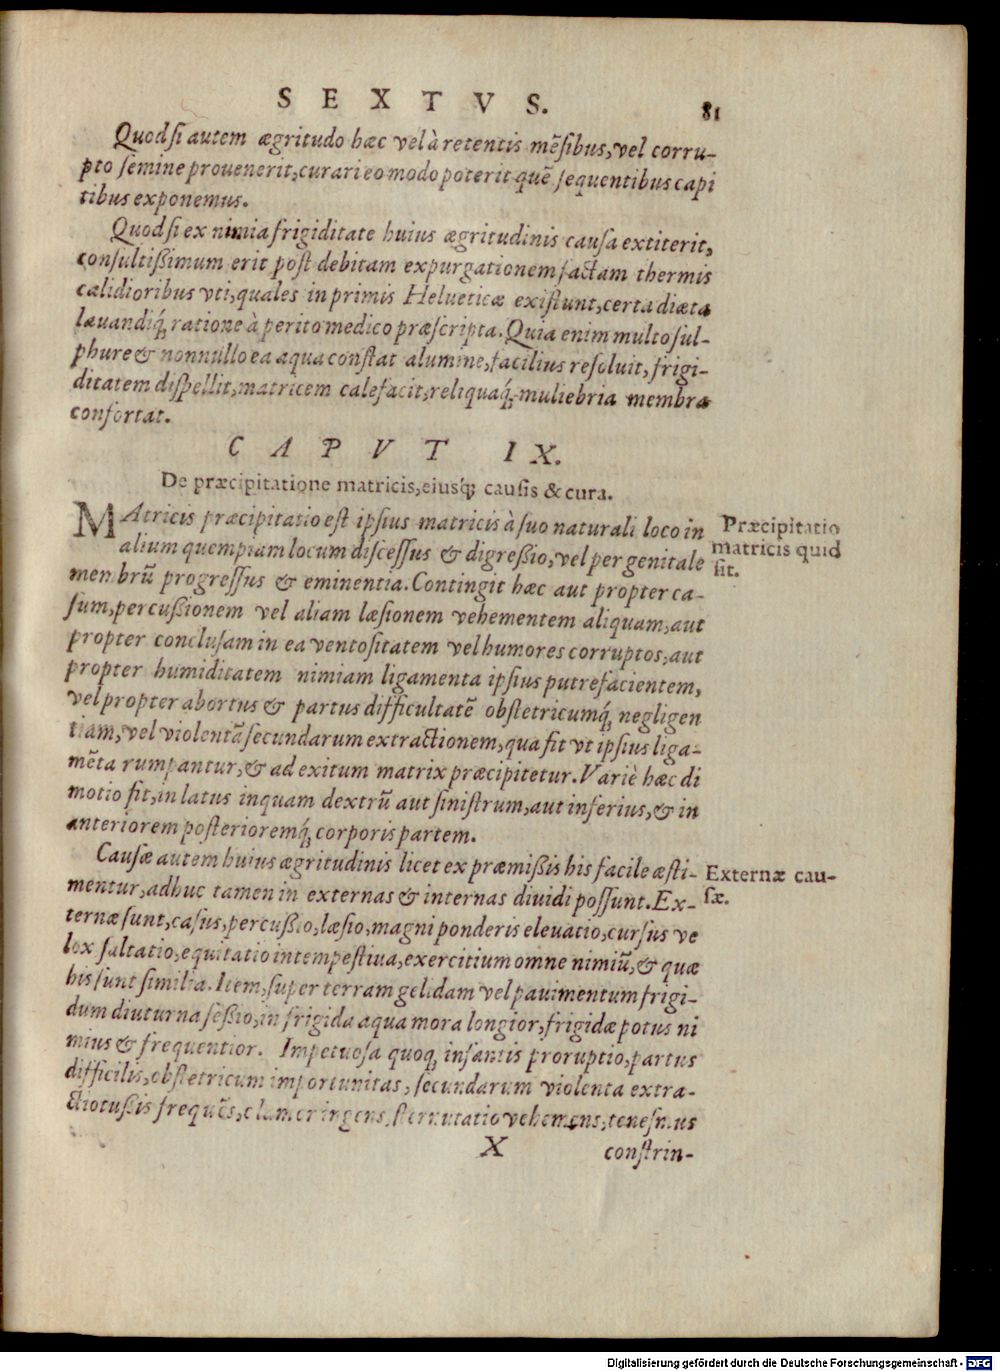 SEXTVS. 81
Quod si autem ægritudo hæc vel à retentis mēsibus, vel corru-
pto semine prouenerit, curari eo modo poterit quē sequentibus capi
tibus exponemus.
Quod si ex nimia frigiditate huius ægritudinis causa extiterit,
consultißimum erit post debitam expurgationem factam thermis
calidioribus vti, quales in primis Helueticæ existunt, certa diæta
lauandiq́ ratione à perito medico præscripta. Quia enim multo sul-
phure & nonnullo ea aqua constat alumine, facilius resoluit, frigi-
ditatem dispellit, matricem calefacit, reliquaq́ muliebria membra
confortat.
CAPVT IX.
De præcipitatione matricis, eiusq́; causis & cura.
MAtricis præcipitatio est ipsius matricis à suo naturali loco in
alium quempiam locum discessus & digreßio, vel per genitale
membrū progressus & eminentia. Contingit hæc aut propter ca-
sum, percußionem vel aliam læsionem vehementem aliquam, aut
propter conclusam in ea ventositatem vel humores corruptos, aut
propter humiditatem nimiam ligamenta ipsius putrefacientem,
vel propter abortus & partus difficultatē obstetricumq́ negligen
tiam, vel violentā secundarum extractionem, qua fit vt ipsius liga-
mēta rumpantur, & ad exitum matrix præcipitetur. Variè hæc di
motio fit, in latus inquam dextrū aut sinistrum, aut inferius, & in
anteriorem posterioremq́ corporis partem.
Præcipitatio
matricis quid
sit.
Causæ autem huius ægritudinis licet ex præmißis his facile æsti-
mentur, adhuc tamen in externas & internas diuidi possunt. Ex-
ternæ sunt, casus, percußio, læsio, magni ponderis eleuatio, cursus ve
lox saltatio, equitatio intempestiua, exercitium omne nimiū, & quæ
his sunt similia. Item, super terram gelidam vel pauimentum frigi-
dum diuturna seßio, in frigida aqua mora longior, frigidæ potus ni
mius & frequentior. Impetuosa quoq́ infantis proruptio, partus
difficilis, obstetricum importunitas, secundarum violenta extra-
ctio tußis frequēs, clamor ingens, sternutatio vehemens, tenesmus
Externæ cau-
sæ.
X constrin-
Digitalisierung gefördert durch die Deutsche Forschungsgemeinschaft - DFG